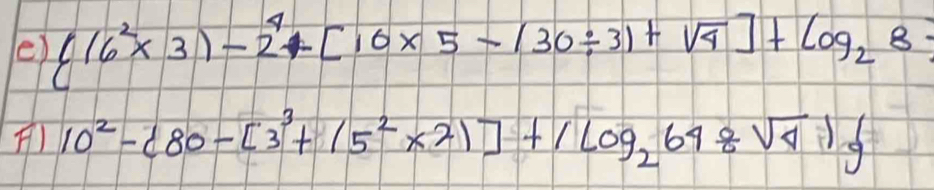 e) {(6²×3)-2⁴+[10×5-(30÷3)+√4]+Log₂ 8
F) 10²-{80-[3³+(5²×2)]+(Log₂64÷√4)}